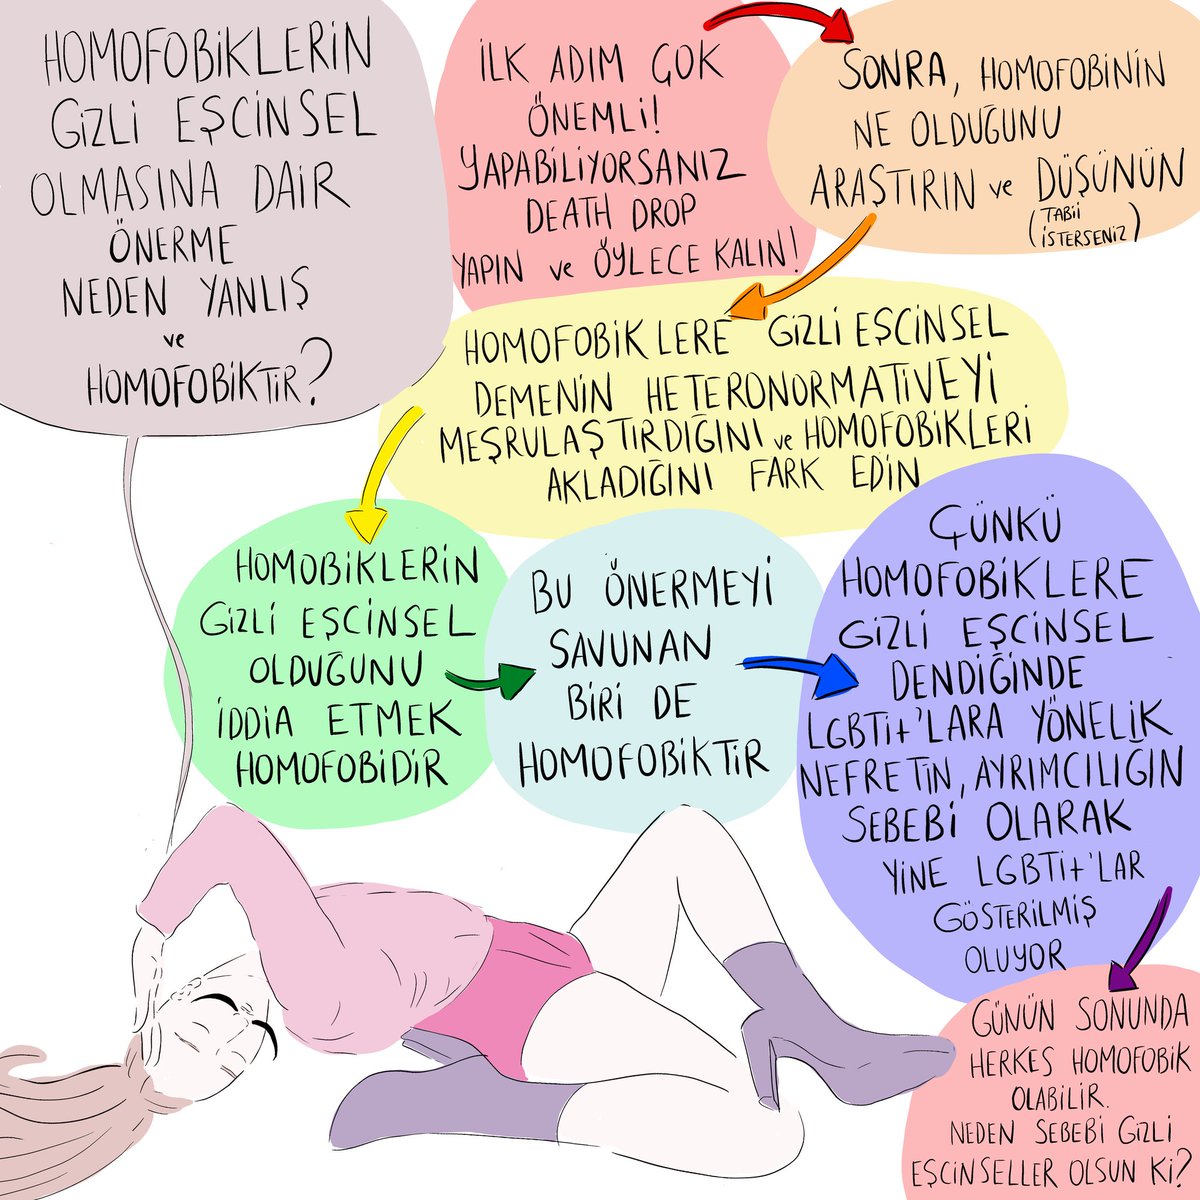 HOMOFOBİKLERİN
GİZLİ EŞCİNSEL
OLMASINA DAİR
ÖNERME
NEDEN YANLIŞ
ve
HOMOFOBİKTİR?
İLK ADIM ÇOK
ÖNEMLİ!
YAPABİLİYORSANIZ
DEATH DROP
YAPIN ve ÖYLECE KALIN!
SONRA, HOMOFOBİNİN
NE OLDUĞUNU
ARAŞTIRIN ve DÜŞÜNÜN
(TABİİ
İSTERSENİZ)
HOMOFOBİKLERE GİZLİ EŞCİNSEL
DEMENİN HETERONORMATİVEYİ
MEŞRULAŞTIRDIĞINI ve HOMOFOBİKLERİ
AKLADIĞINI FARK EDİN
HOMOBİKLERİN
GİZLİ EŞCİNSEL
OLDUĞUNU
İDDİA ETMEK
HOMOFOBİDİR
BU ÖNERMEYİ
SAVUNAN
BİRİ DE
HOMOFOBİKTİR
ÇÜNKÜ
HOMOFOBİKLERE
GİZLİ EŞCİNSEL
DENDİĞİNDE
LGBTİ+'LARA YÖNELİK
NEFRETİN, AYRIMCILIĞIN
SEBEBİ OLARAK
YİNE LGBTİ+'LAR
GÖSTERİLMİŞ
OLUYOR
GÜNÜN SONUNDA
HERKES HOMOFOBİK
OLABİLİR.
NEDEN SEBEBİ GİZLİ
EŞCİNSELLER OLSUN Kİ?